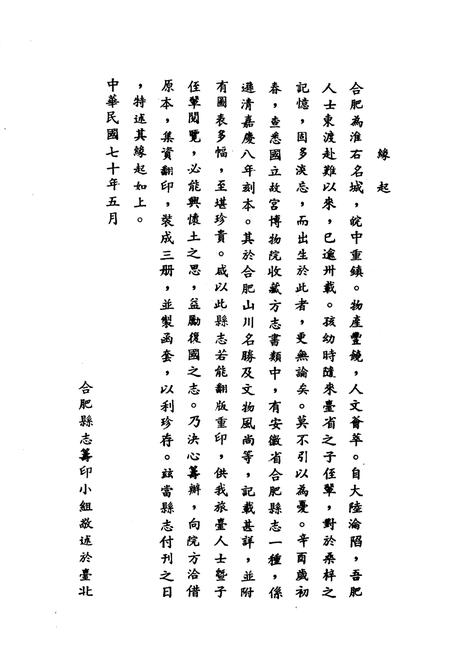 緣起
合肥為淮右名城，皖中重鎮。物產豐饒，人文薈萃。自大陸淪陷，吾肥
人士東渡赴難以來，已逾卅載。孩幼時隨來臺省之子侄輩，對於桑梓之
記憶，固多淡忘，而出生於此者，更無論矣。莫不引以為憂。辛酉歲初
春，查悉國立故宮博物院收藏方志書類中，有安徽省合肥縣志一種，係
遜清嘉慶八年刻本。其於合肥山川名勝及文物風尚等，記載甚詳，並附
有圖表多幅，至堪珍貴。咸以此縣志若能翻版重印，供我旅臺人士暨子
侄輩閱覽，必能興懷土之思，益勵復國之志。乃決心籌辦，向院方洽借
原本，集資翻印，裝成三册，並製函套，以利珍存。玆當縣志付刊之日
，特述其緣起如上。
中華民國七十年五月
合肥縣志籌印小組敬述於臺北